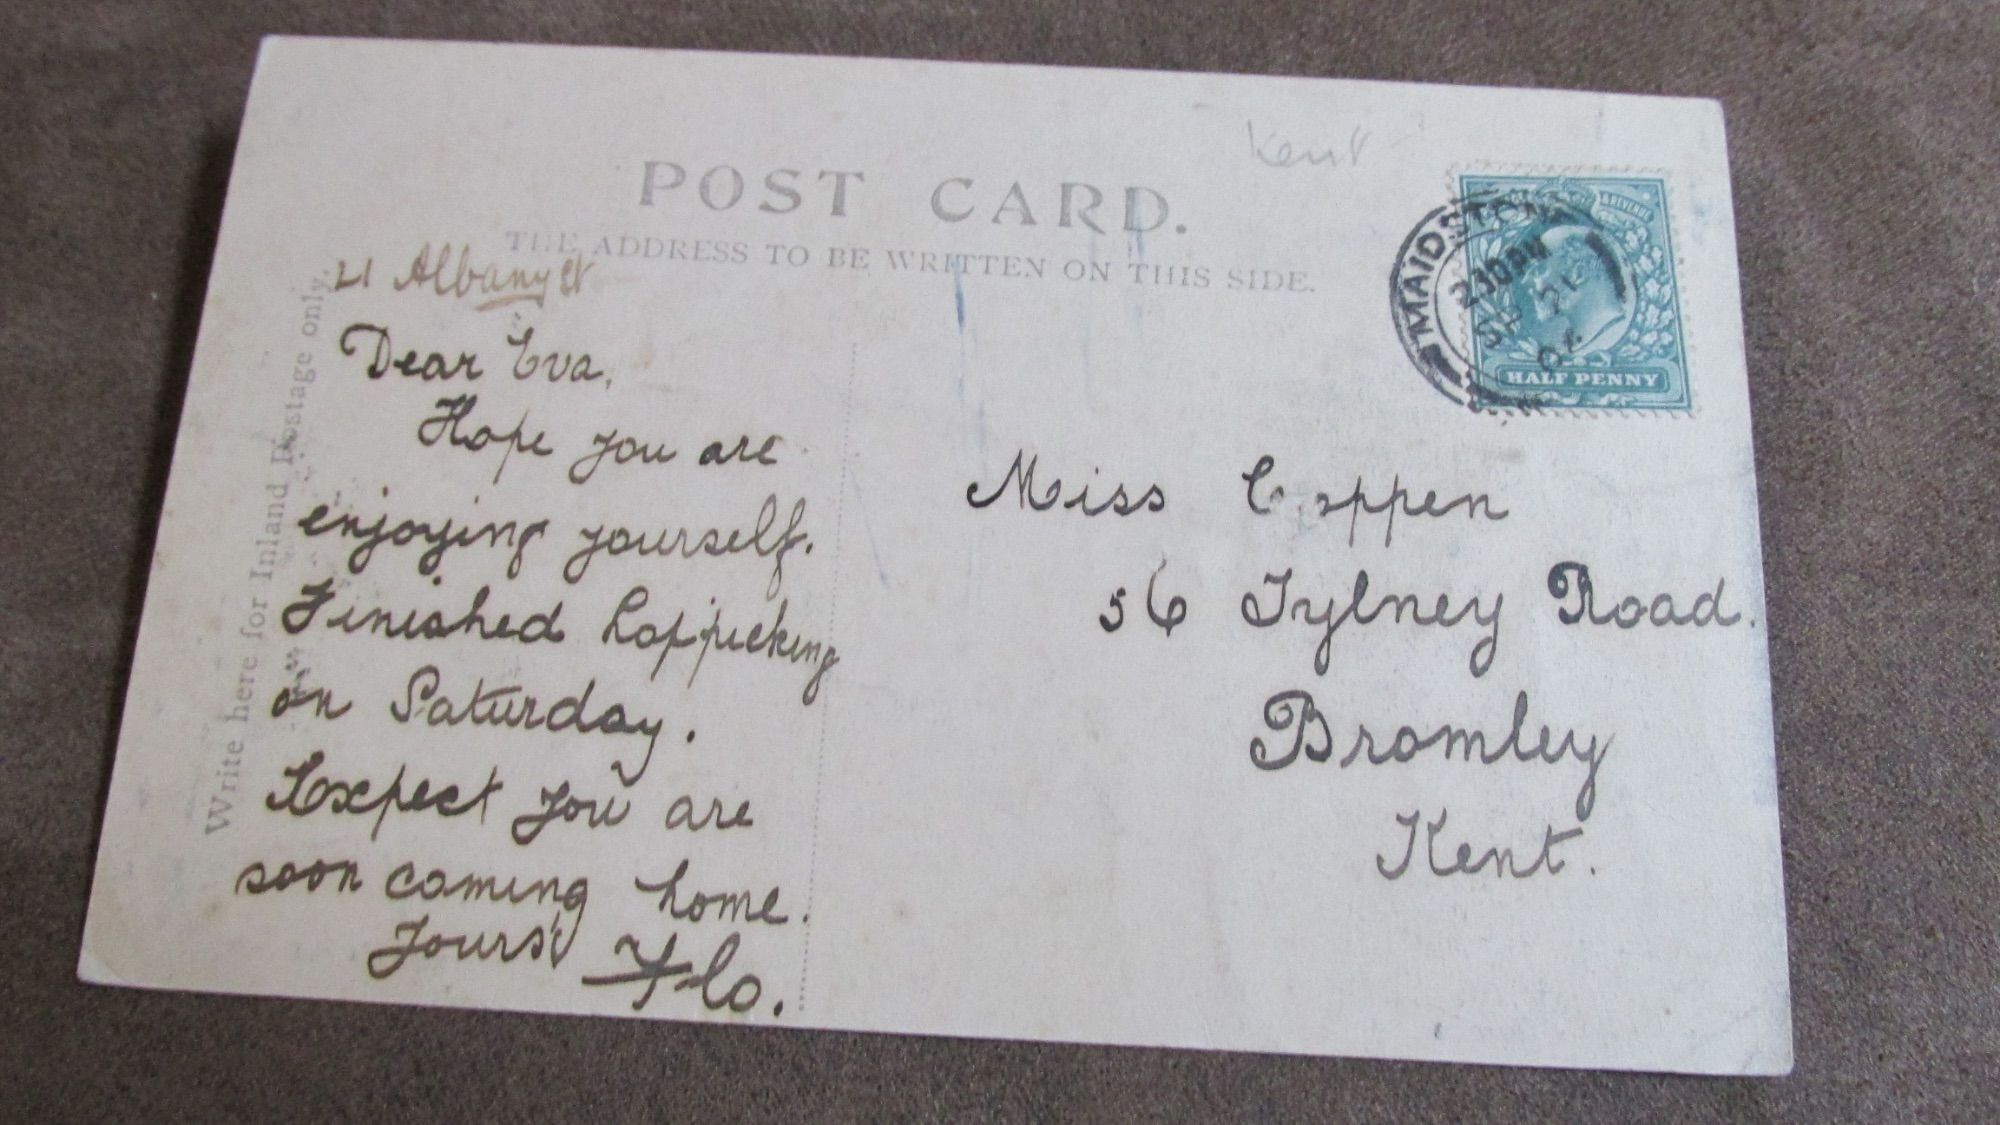 Kent
POST CARD.
THE ADDRESS TO BE WRITTEN ON THIS SIDE.
Write here for Inland Postage only.
21 Albany St
Dear Eva,
Hope you are
enjoying yourself.
Finished hoppicking
on Saturday.
Expect you are
soon coming home.
Yours
Flo.
MAIDSTONE
SP 21
04
& REVENUE
HALF PENNY
Miss Coppen
56 Tylney Road.
Bromley
Kent.